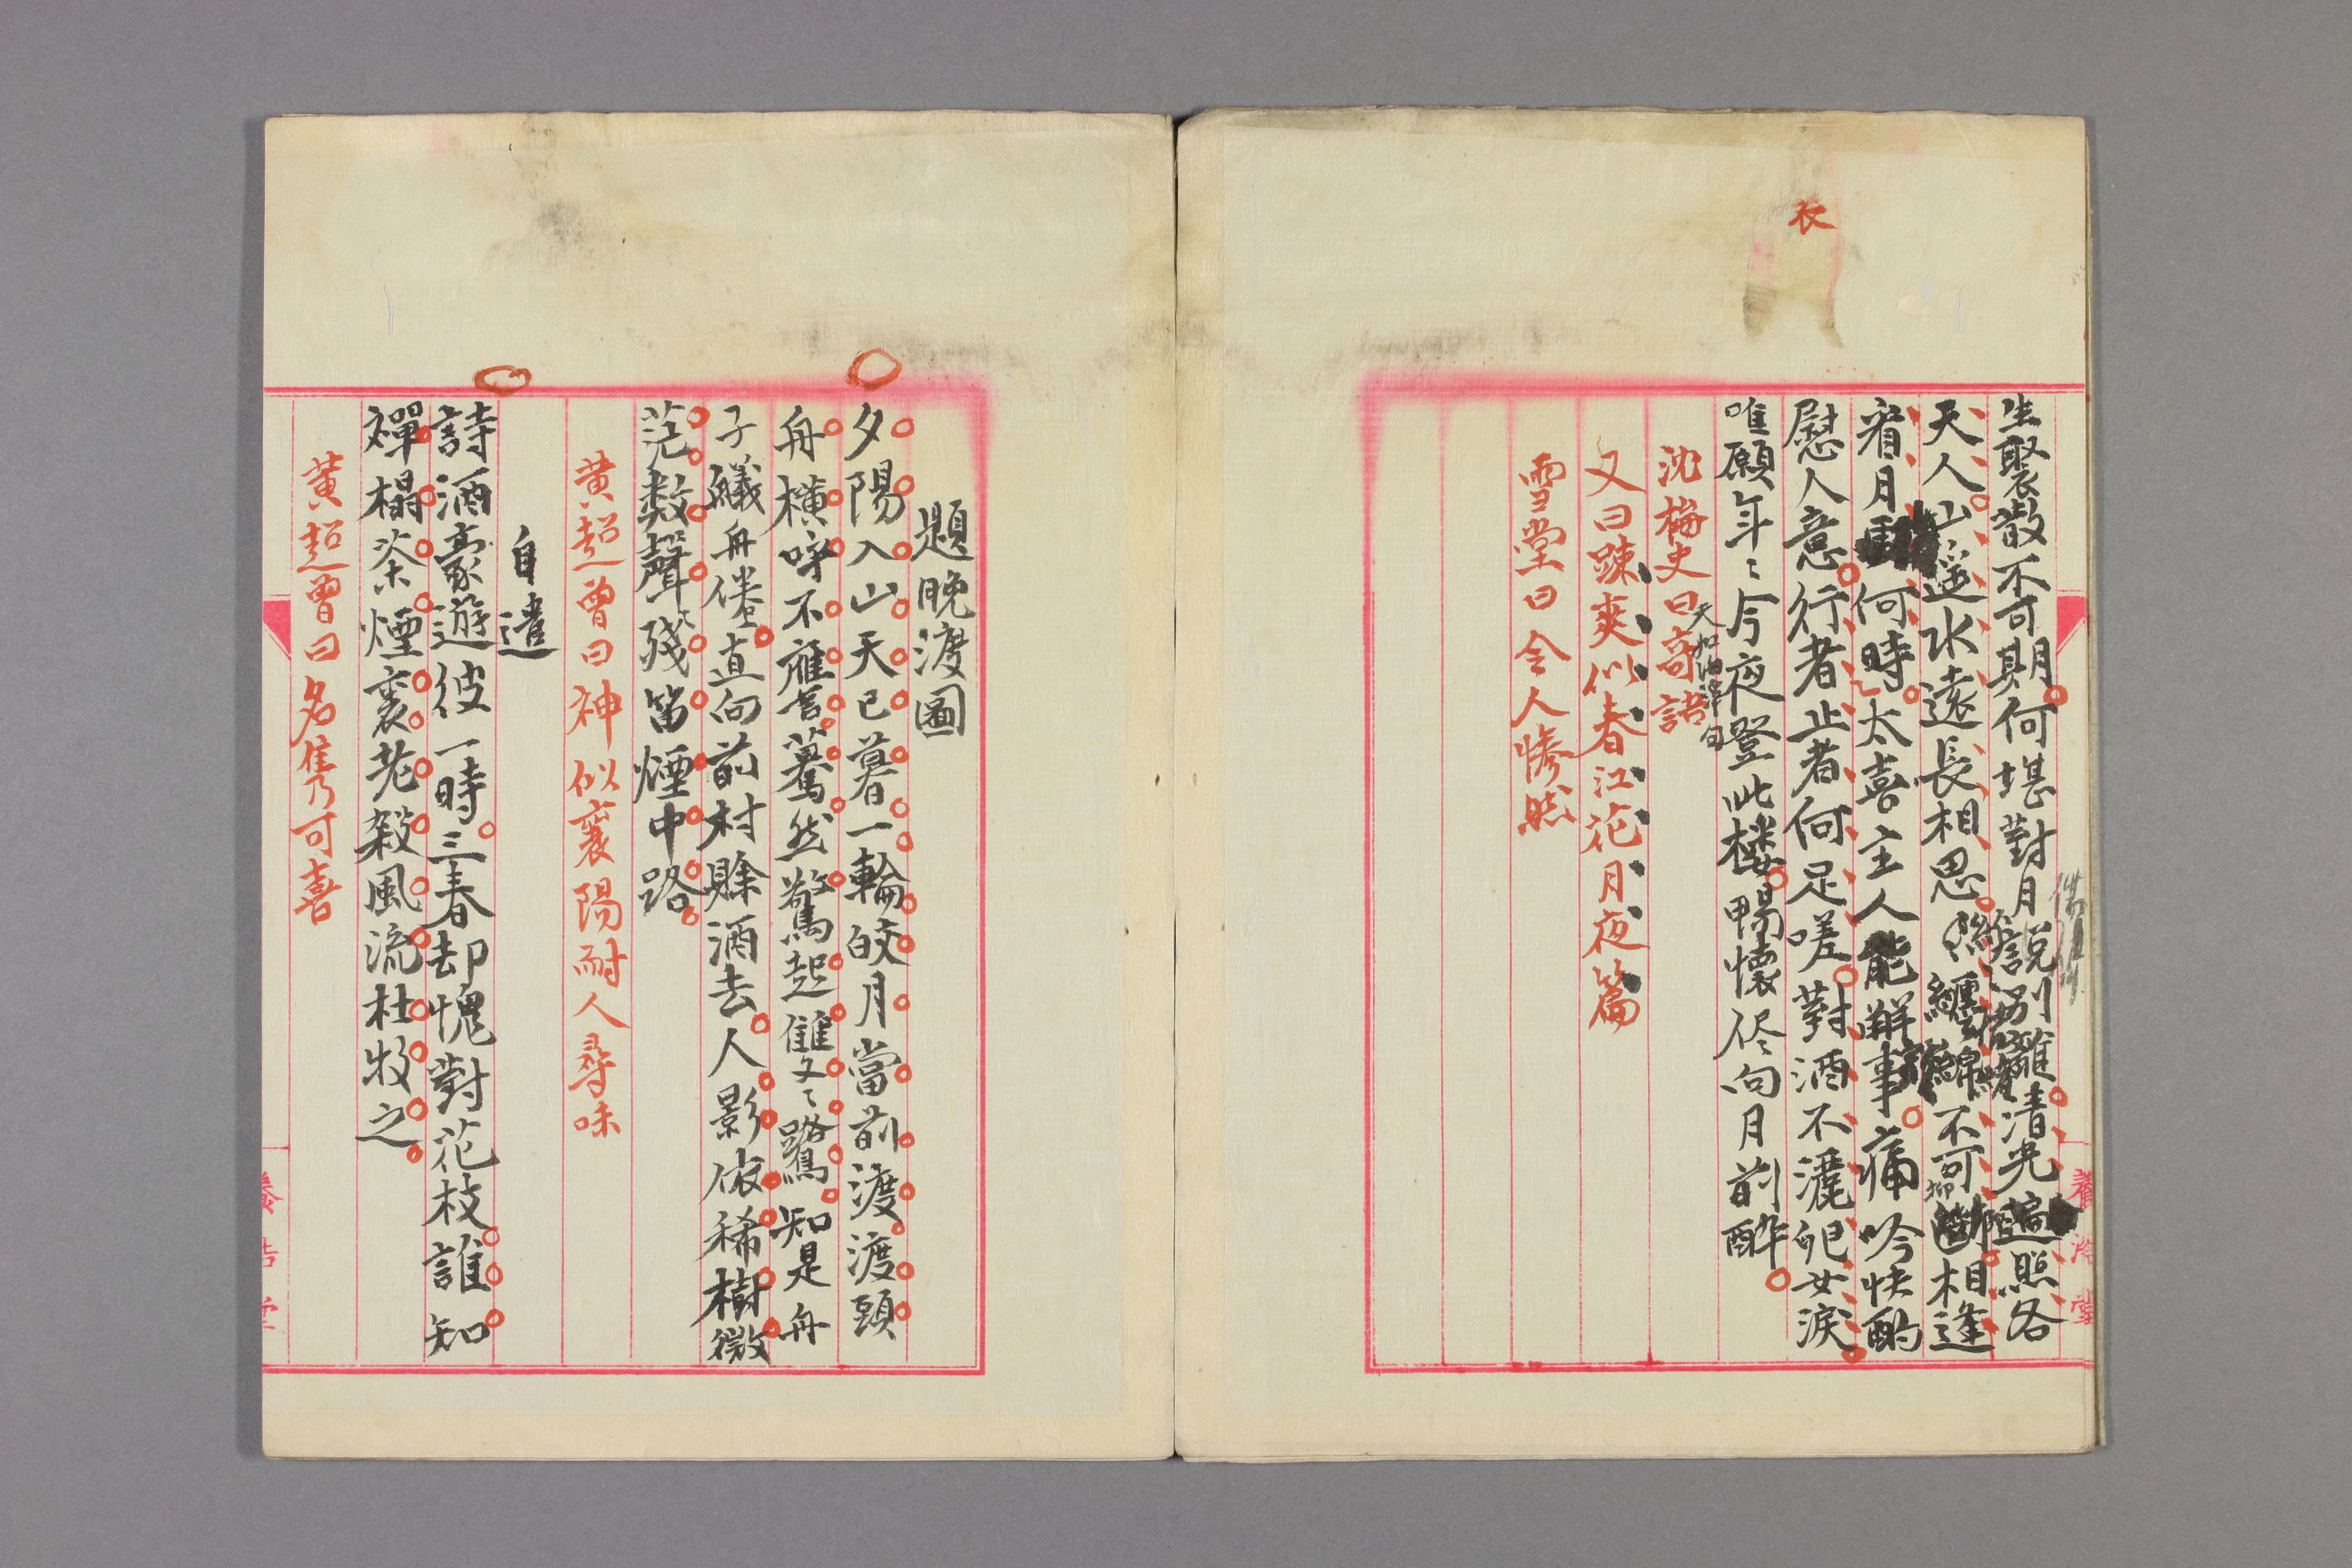 衣
生聚散不可期何堪對月説別離清光遍照各
天人山遥水遠長相思纏綿不可斷相逢
看月何時太喜主人能解事痛吟快酌
慰人意行者止者何足嗟對酒不灑兒女淚
唯願年〻今夜登此樓暢懷向月前酔
沈梅史曰奇語
又曰疎爽似春江花月夜篇
雪堂曰令人慘然
題晚渡圖
夕陽入山天已暮一輪皎月當前渡渡頭
舟橫呼不應驀然驚起雙〻鷺知是舟
子艤舟倦直向前村賖酒去人影依稀樹微
茫數聲殘笛煙中路
黄超曾曰神似襄陽耐人尋味
自遣
詩酒豪遊彼一時三春却愧對花枝誰知
禪榻茶煙裏老殺風流杜牧之
黄超曾曰名雋乃可喜